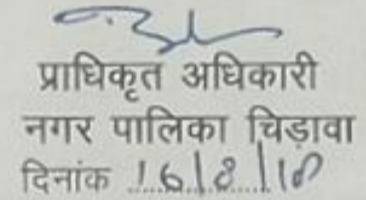 प्राधिकृत अधिकारी
नगर पालिका चिड़ावा
दिनांक 16/8/18